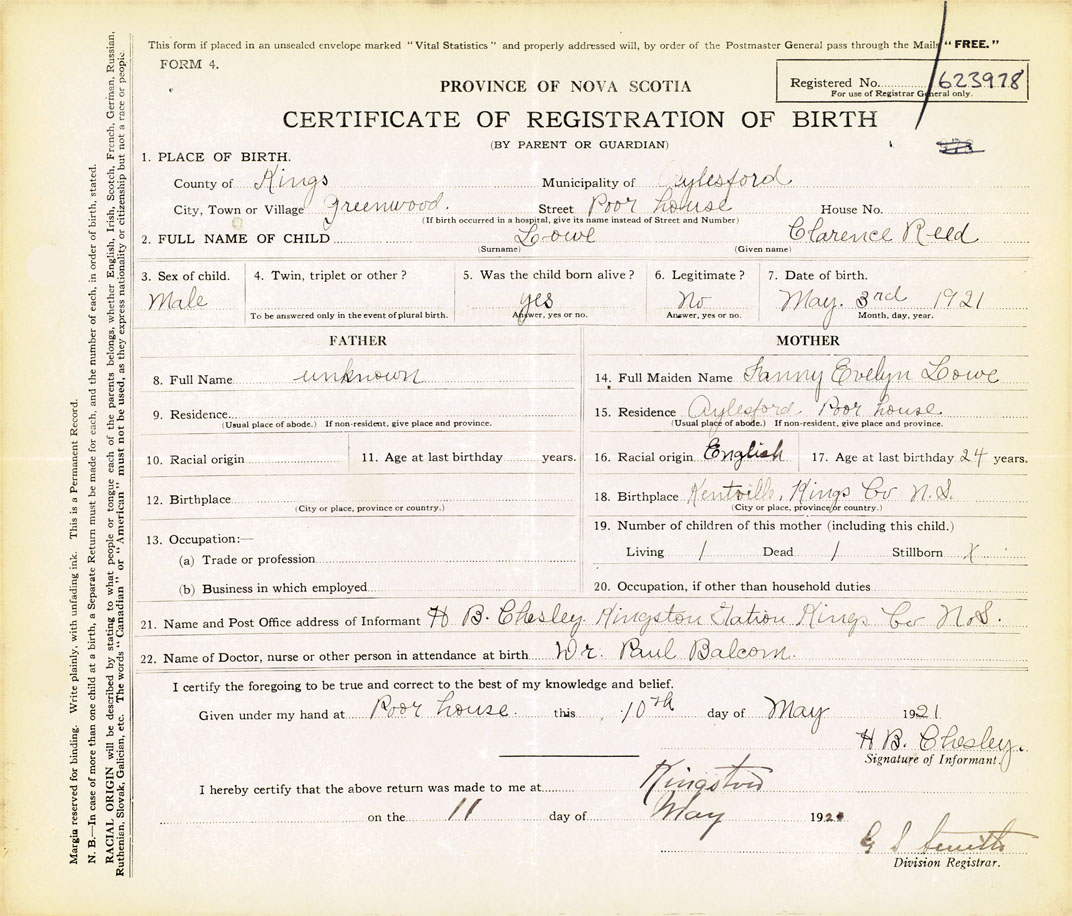 This form if placed in an unsealed envelope marked "Vital Statistics" and properly addressed will, by order of the Postmaster General pass through the Mails "FREE."
FORM 4.
Registered No. 623978
For use of Registrar General only.
PROVINCE OF NOVA SCOTIA
CERTIFICATE OF REGISTRATION OF BIRTH
(BY PARENT OR GUARDIAN)
1. PLACE OF BIRTH.
County of Kings Municipality of Aylesford
City, Town or Village Greenwood. Street Poor house House No.
(If birth occurred in a hospital, give its name instead of Street and Number)
2. FULL NAME OF CHILD Lowe Clarence Reed
(Surname) (Given name)
3. Sex of child. 4. Twin, triplet or other? 5. Was the child born alive? 6. Legitimate? 7. Date of birth.
Male yes No May. 3rd 1921
To be answered only in the event of plural birth. Answer, yes or no. Answer, yes or no. Month, day, year.
FATHER MOTHER
8. Full Name unknown 14. Full Maiden Name Fanny Evelyn Lowe
9. Residence 15. Residence Aylesford Poor house
(Usual place of abode.) If non-resident, give place and province. (Usual place of abode.) If non-resident, give place and province.
10. Racial origin 11. Age at last birthday years. 16. Racial origin English 17. Age at last birthday 24 years.
12. Birthplace 18. Birthplace Kentville, Kings Co N.S.
(City or place, province or country.) (City or place, province or country.)
13. Occupation:— 19. Number of children of this mother (including this child.)
(a) Trade or profession Living 1 Dead 1 Stillborn X
(b) Business in which employed 20. Occupation, if other than household duties
21. Name and Post Office address of Informant H B. Chesley. Kingston Station Kings Co N.S.
22. Name of Doctor, nurse or other person in attendance at birth Dr. Paul Balcom.
I certify the foregoing to be true and correct to the best of my knowledge and belief.
Given under my hand at Poor house. this 10th day of May 1921
H B. Chesley.
Signature of Informant.
I hereby certify that the above return was made to me at Kingston
on the 11 day of May 192
G S Smith
Division Registrar.
Margin reserved for binding. Write plainly, with unfading ink. This is a Permanent Record.
N. B.—In case of more than one child at a birth, a Separate Return must be made for each, and the number of each, in order of birth, stated.
RACIAL ORIGIN will be described by stating to what people or tongue each of the parents belongs, whether English, Irish, Scotch, French, German, Russian,
Ruthenian, Slovak, Galician, etc. The words "Canadian" or "American" must not be used, as they express nationality or citizenship but not a race or people.